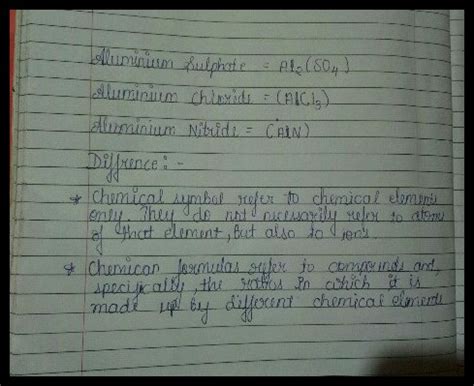 Aluminium Sulphate = Al2(SO4)
Aluminium Chloride = (AlCl3)
Aluminium Nitride = (AlN)
Diffrence :-
* Chemical symbol refer to chemical elements
only. They do not necissarily refer to atoms
of that element, but also to ions
* Chemican formulas refer to compounds and,
specifically, the ratios in which it is
made up by different chemical elements